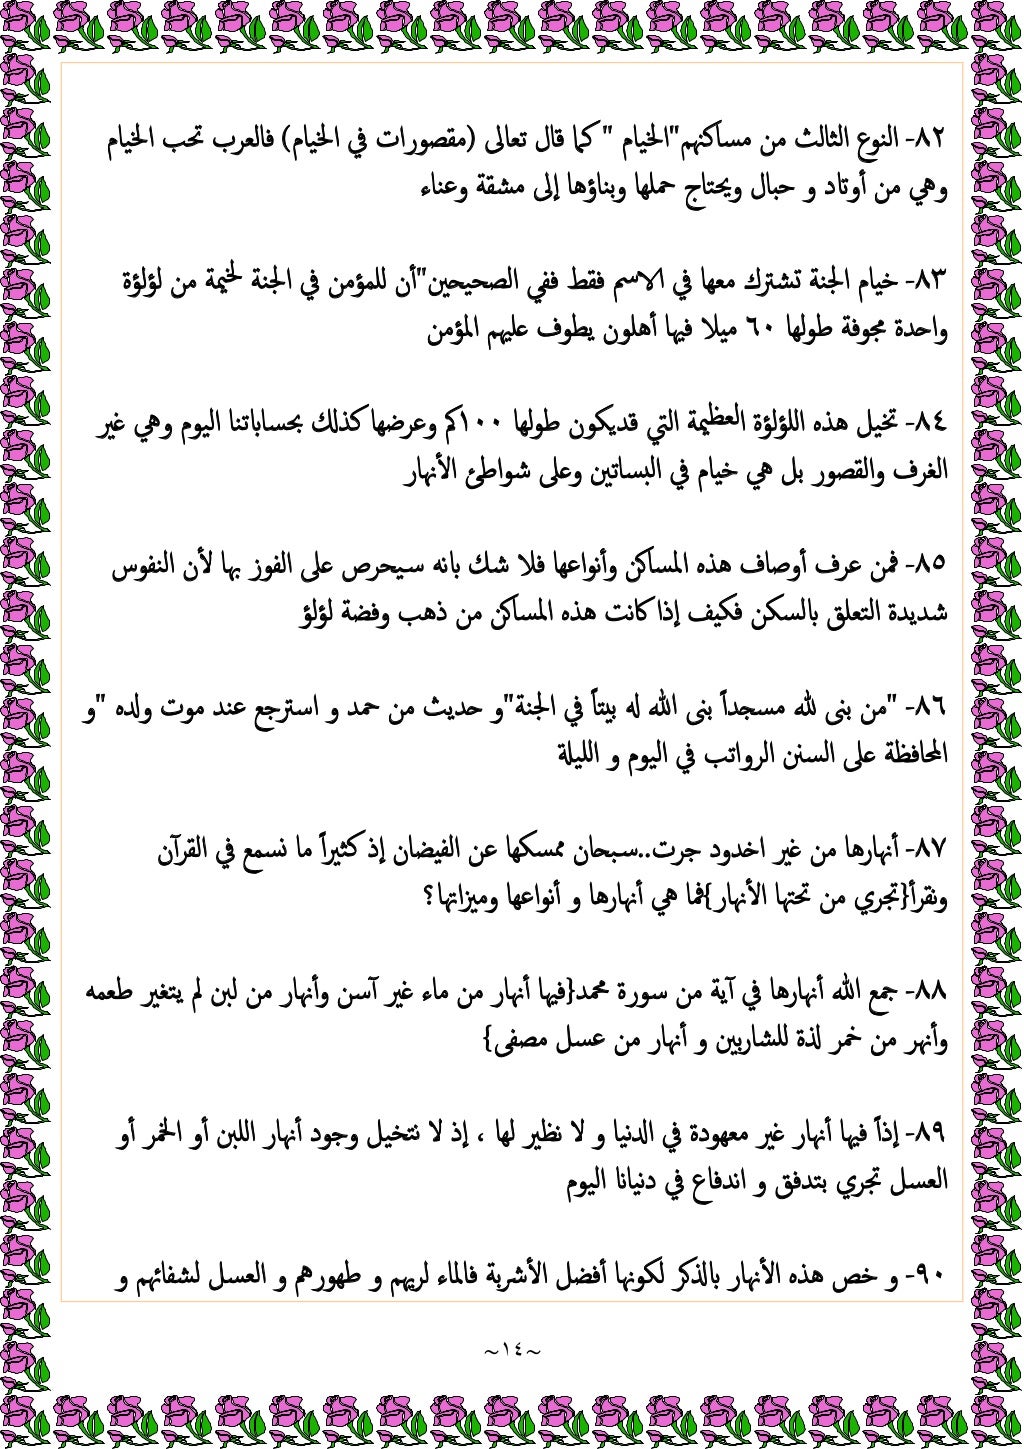 ٨٢- النوع الثالث من مساكنهم"الخيام " كما قال تعالى (مقصورات في الخيام) فالعرب تحب الخيام
وهي من أوتاد و حبال ويحتاج حملها وبناؤها إلى مشقة وعناء
٨٣- خيام الجنة تشترك معها في الاسم فقط ففي الصحيحين"أن للمؤمن في الجنة لخيمة من لؤلؤة
واحدة مجوفة طولها ٦٠ ميلا فيها أهلون يطوف عليهم المؤمن
٨٤- تخيل هذه اللؤلؤة العظيمة التي قديكون طولها ١٠٠كم وعرضها كذلك بحساباتنا اليوم وهي غير
الغرف والقصور بل هي خيام في البساتين وعلى شواطئ الأنهار
٨٥- فمن عرف أوصاف هذه المساكن وأنواعها فلا شك بانه سيحرص على الفوز بها لأن النفوس
شديدة التعلق بالسكن فكيف إذا كانت هذه المساكن من ذهب وفضة لؤلؤ
٨٦- "من بنى لله مسجداً بنى الله له بيتاً في الجنة"و حديث من حمد و استرجع عند موت ولده "و
المحافظة على السنن الرواتب في اليوم و الليلة
٨٧- أنهارها من غير اخدود جرت..سبحان ممسكها عن الفيضان إذ كثيراً ما نسمع في القرآن
ونقرأ{تجري من تحتها الأنهار}فما هي أنهارها و أنواعها وميزاتها؟
٨٨- جمع الله أنهارها في آية من سورة محمد{فيها أنهار من ماء غير آسن وأنهار من لبن لم يتغير طعمه
وأنهر من خمر لذة للشاربين و أنهار من عسل مصفى}
٨٩- إذاً فيها أنهار غير معهودة في الدنيا و لا نظير لها ، إذ لا نتخيل وجود أنهار اللبن أو الخمر أو
العسل تجري بتدفق و اندفاع في دنيانا اليوم
٩٠- و خص هذه الأنهار بالذكر لكونها أفضل الأشربة فالماء لريهم و طهورهم و العسل لشفائهم و
~١٤~